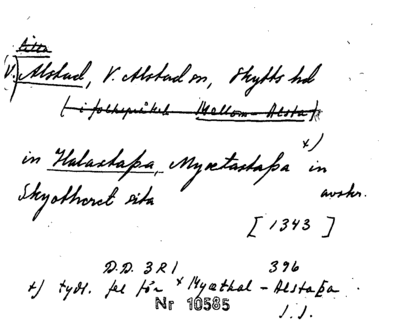 V. Alstad, V. Alstad sn, Skytts hd
(i folkspråket Mellom-Alsta)
in Halastaþa, Myætastaþa x) in
Skyotheret sita avskr.
[1343]
D.D. 3 R 1 396
x) tydl. fel för x Myæthal-Alstaþa
Nr 10585
J.J.